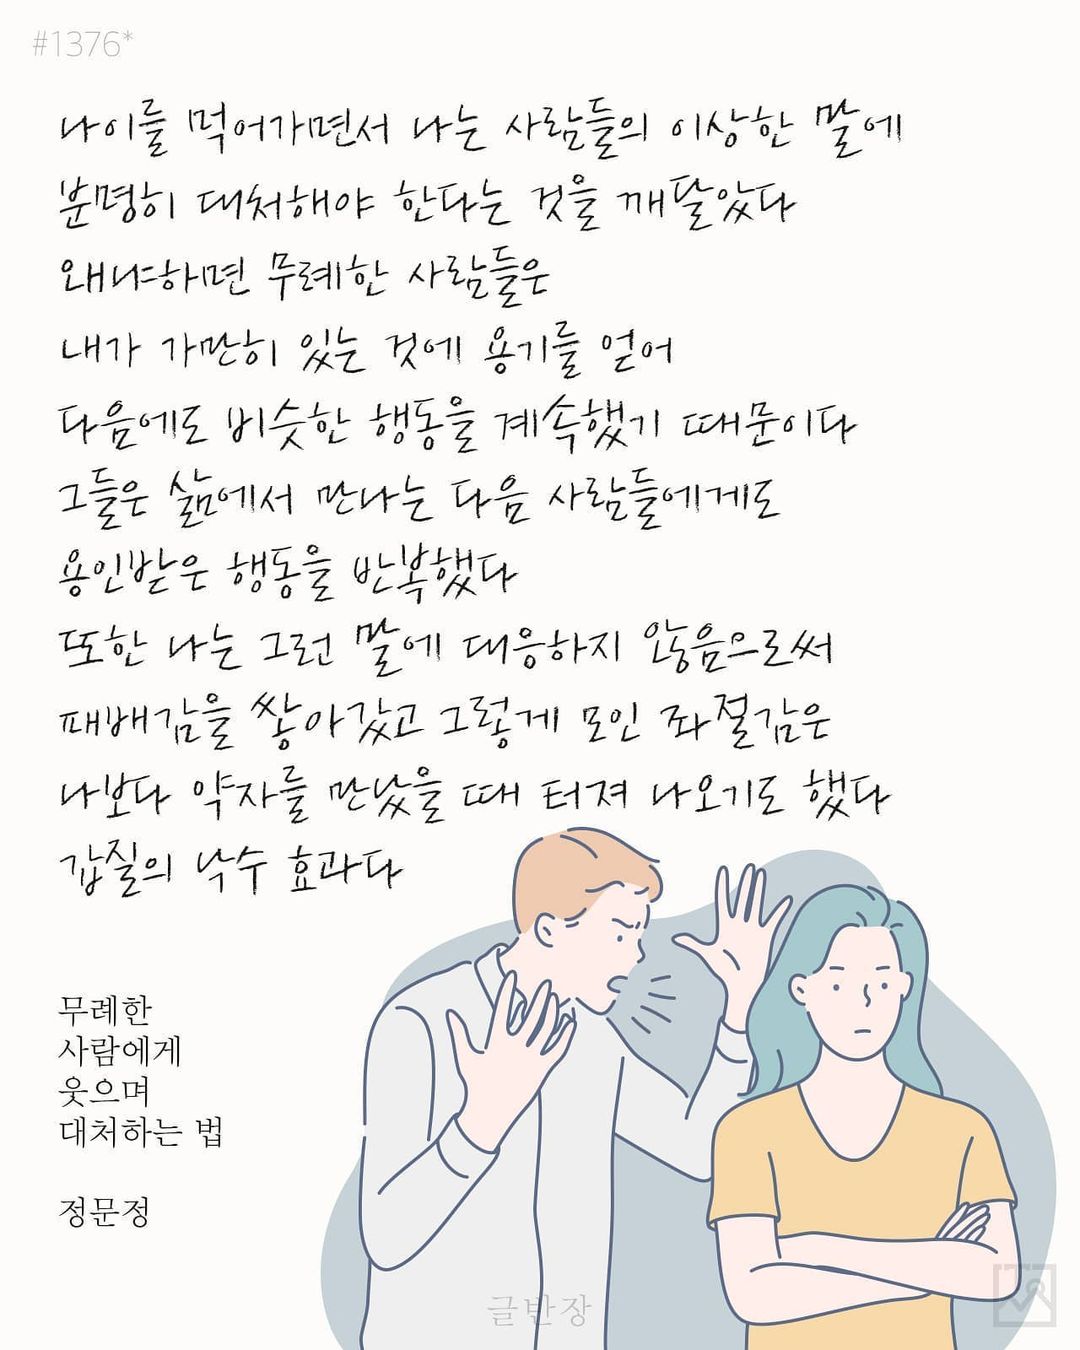 #1376*
나이를 먹어가면서 나는 사람들의 이상한 말에
분명히 대처해야 한다는 것을 깨달았다
왜냐하면 무례한 사람들은
내가 가만히 있는 것에 용기를 얻어
다음에도 비슷한 행동을 계속했기 때문이다
그들은 삶에서 만나는 다음 사람들에게도
용인받은 행동을 반복했다
또한 나는 그런 말에 대응하지 않음으로써
패배감을 쌓아갔고 그렇게 모인 좌절감은
나보다 약자를 만났을 때 터져 나오기도 했다
갑질의 낙수 효과다
무례한
사람에게
웃으며
대처하는 법
정문정
글반장